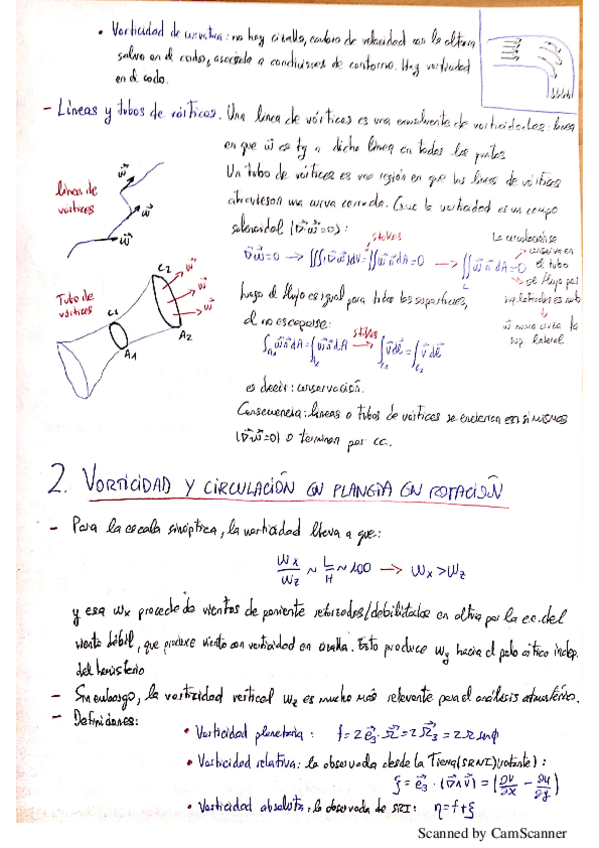 • Vorticidad de curvatura: no hay cizalla, cambio de velocidad con la altura
salvo en el codo, asociada a condiciones de contorno. Hay vorticidad
en el codo.
- Líneas y tubos de vórtices. Una línea de vórtices es una envolvente de vorticidades: línea
en que w⃗ es tg a dicha línea en todos los puntos
Un tubo de vórtices es una región en que las líneas de vórtices
atraviesan una curva cerrada. Que la vorticidad es un campo
solenoidal (∇⃗w⃗=0):
líneas de
vórtices
w⃗
w⃗
w⃗
∇⃗w⃗=0 → ∭(∇⃗w⃗)dV=∬w⃗n⃗dA=0 → ∬w⃗n⃗dA=0
stokes
L
La circulación se
conserva en
el tubo
el flujo por
sup. laterales es nulo
w⃗ nunca cruza la
sup. lateral
Tubo de
vórtices
C1
C2
A1
A2
w⃗
w⃗
w⃗
luego el flujo es igual para todas las superficies,
al no escaparse:
∫A1 w⃗n⃗dA=∫A2 w⃗n⃗dA → ∫C1 v⃗dl⃗=∫C2 v⃗dl⃗
stokes
es decir: conservación.
Consecuencia: líneas o tubos de vórtices se encierran en sí mismos
(∇⃗w⃗=0) o terminan por cc.
2. VORTICIDAD Y CIRCULACIÓN EN PLANETA EN ROTACIÓN
- Para la escala sinóptica, la vorticidad lleva a que:
wx/wz ~ L/H ~ 100 → wx>wz
y esa wx procede de vientos de poniente reforzados/debilitados en altura por la ec. del
viento débil, que produce viento con verticidad en cizalla. Esto produce wy hacia el polo indep.
del hemisferio
- Sin embargo, la vorticidad vertical wz es mucho más relevante para el análisis atmosférico.
- Definiciones:
• Vorticidad planetaria: f=2e⃗3·Ω⃗=2Ω⃗3=2Ω senϕ
• Vorticidad relativa: la observada desde la Tierra (SRNI) (rotante):
ξ=e⃗3·(∇⃗∧v⃗)=(∂v/∂x - ∂u/∂y)
• Vorticidad absoluta: la observada de SRI: η=f+ξ
Scanned by CamScanner